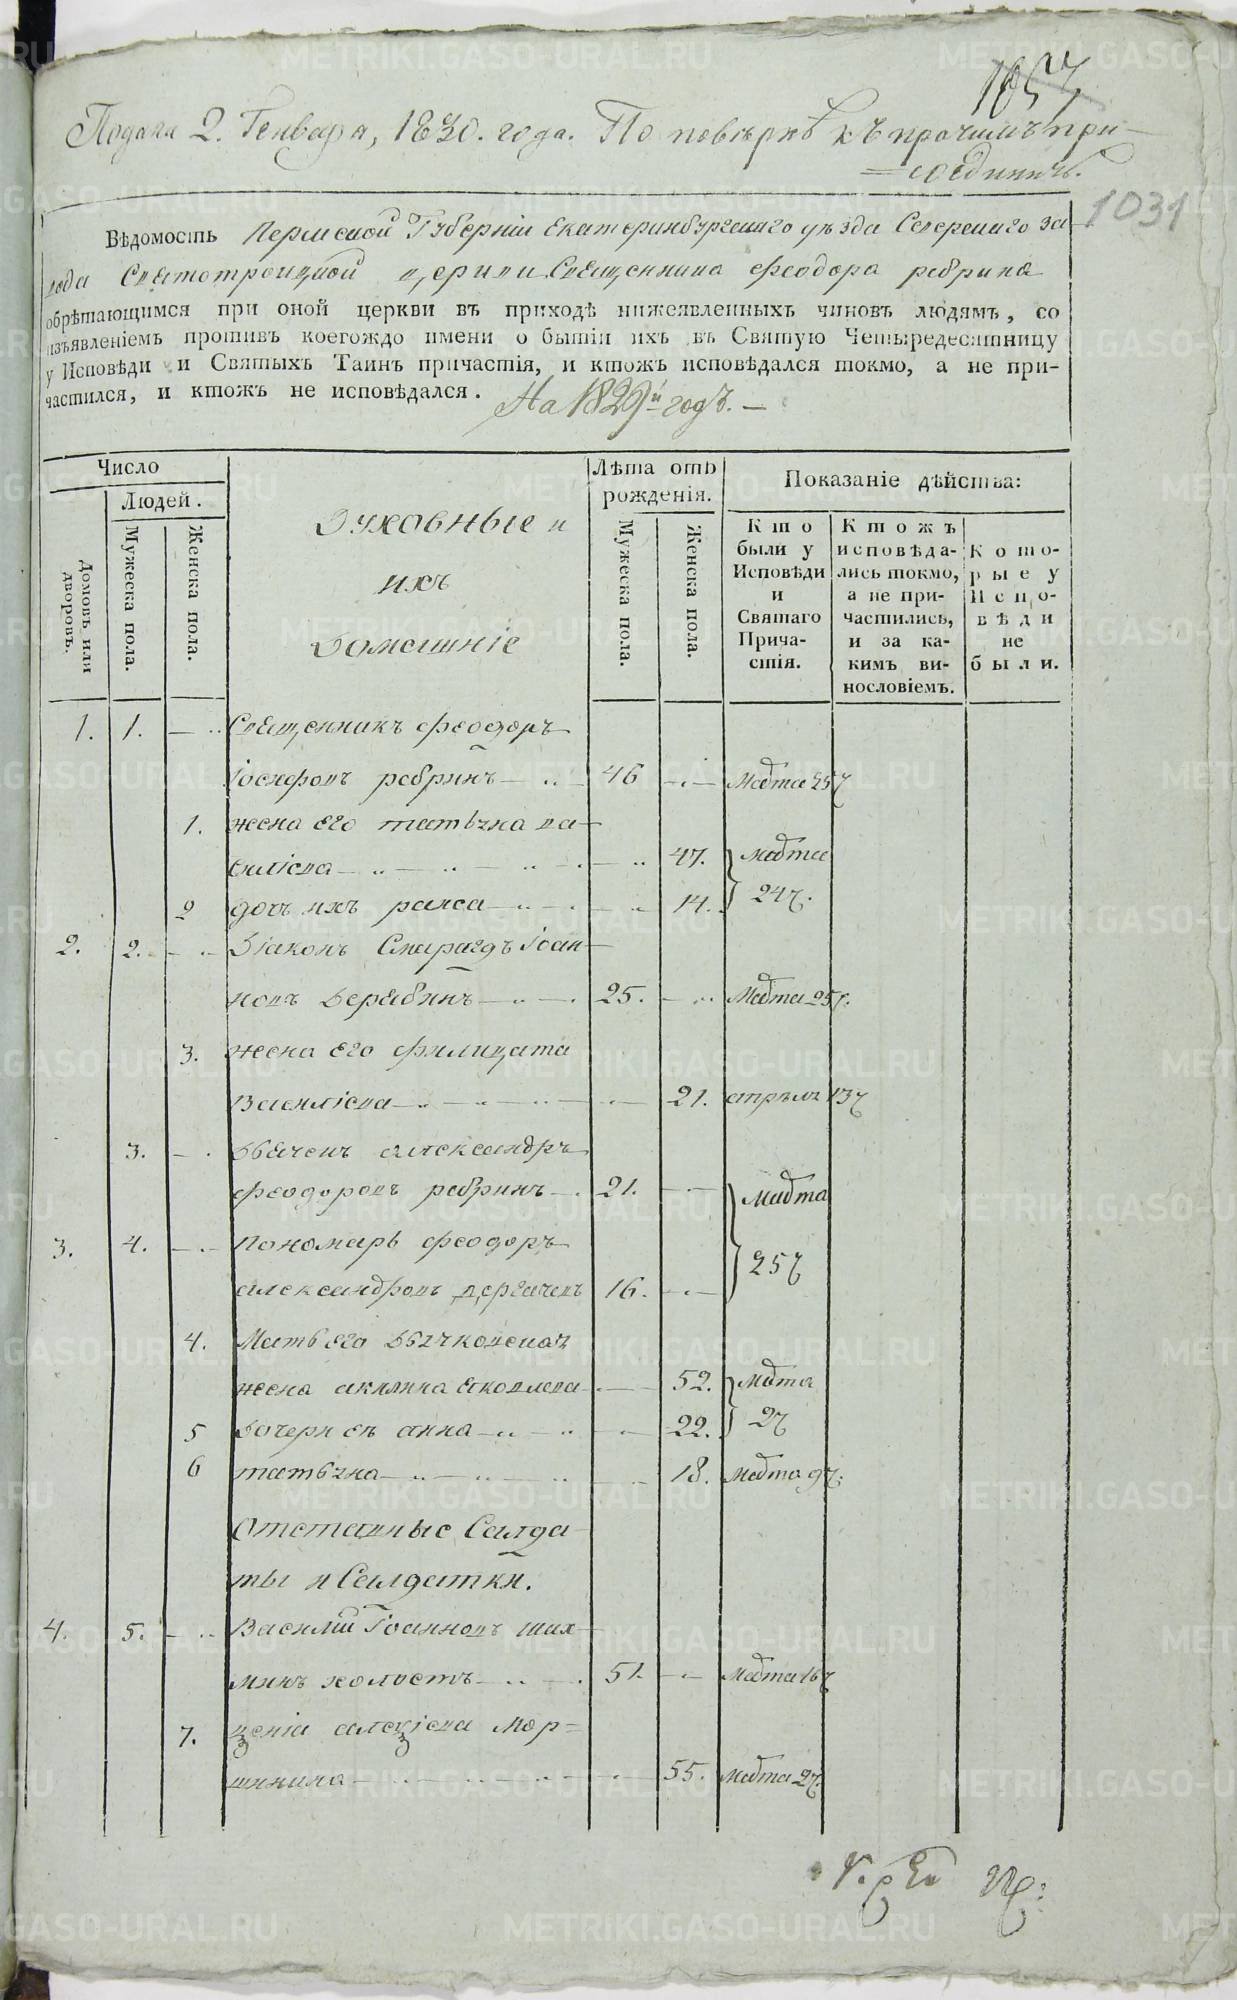 1057
Подана 2. Генваря, 1830. года. По поверкѣ къ прочимъ при-
=соединить.
1031
Вѣдомость Пермской Губерніи Екатеринбургскаго уѣзда Сѣверскаго за-
вода Святотроицкой церкви Священника Феодора рябрина
обрѣтающимся при оной церкви въ приходѣ нижеявленныхъ чиновъ людямъ, со
изъявленіемъ противъ коегождо имени о бытіи ихъ въ Святую Четыредесятницу
у Исповѣди и Святыхъ Таинъ причастія, и ктожъ исповѣдался токмо, а не при-
частился, и ктожъ не исповѣдался. На 1829й годъ. —
Число
Людей.
Домовъ или дворовъ.
Мужеска пола.
Женска пола.
Духовные и
ихъ
домашніе
Лѣта отъ
рожденія.
Мужеска пола.
Женска пола.
Показаніе дѣйства:
Кто
были у
Исповѣди
и
Святаго
Прича-
стія.
Ктожъ
исповѣда-
лись токмо,
а не при-
частились,
и за ка-
кимъ ви-
нословіемъ.
Кото-
рые у
Испо-
вѣди
не
были.
1. 1. — Священникъ феодоръ
Іосифовъ рябринъ — 46 — марта 25
1. жена его татьяна ва-
силіева — 47. марта
2 дочь ихъ раиса — 14. 24.
2. 2. — Діаконъ Смарагдъ Іоан-
новъ Дерябинъ — 25. — марта 25.
3. жена его филицата
Василіева — 21. 13
3. — Дьячекъ александръ
феодоровъ рябринъ — 21. — марта
3. 4. — Пономарь феодоръ 25
александровъ дергачевъ 16. —
4. Мать его дьячковская
жена акилина яковлева — 52. марта
5 дочери ея анна — 22. 2
6 татьяна — 18. марта 9:
Отставные Салда-
ты и Салдатки.
4. 5. — Василій Іоанновъ шах-
минъ холостъ — 51. — марта 16
7. ксенія алексіева мор=
шинина — 55. марта 2.